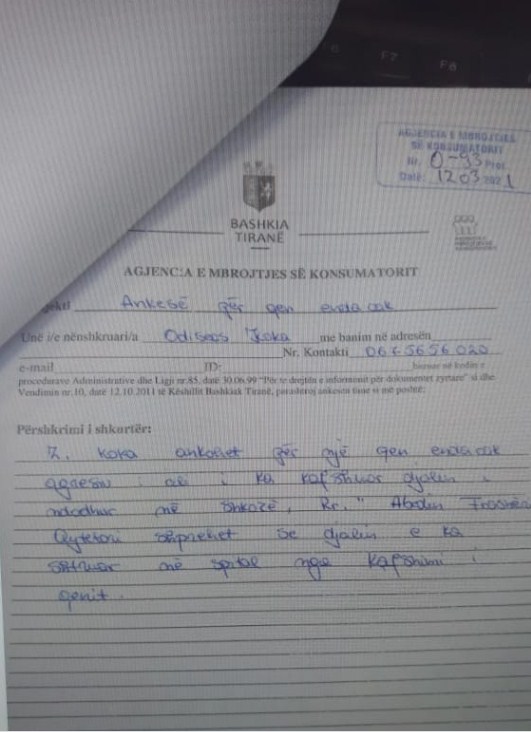 F7
F8
AGJENCIA E MBROJTJES
SË KONSUMATORIT
Nr. 0-93 Prot
Datë 12 03 2021
BASHKIA
TIRANË
AGJENCIA E MBROJTJES SË KONSUMATORIT
Ankesë për qen endacak
Unë i/e nënshkruari/a Odiseas Koka me banim në adresën
Nr. Kontakti 067 5656 020
e-mail ID: bazuar në kodin e
procedurave Administrative dhe Ligji nr.85, datë 30.06.99 "Për të drejtën e informimit për dokumentet zyrtare" si dhe
Vendimin nr.10, datë 12.10.2011 së Këshillit Bashkiak Tiranë, parashtroj ankesën time si më poshtë:
Përshkrimi i shkurtër:
Z. Koka ankohet për një qen endacak
agresiv i cili i ka kafshuar djalin i
ndodhur në Shkozë, Rr. " Abdin Frashëri
Qytetari shprehet se djalin e ka
shtruar në spital nga kafshimi i
qenit.